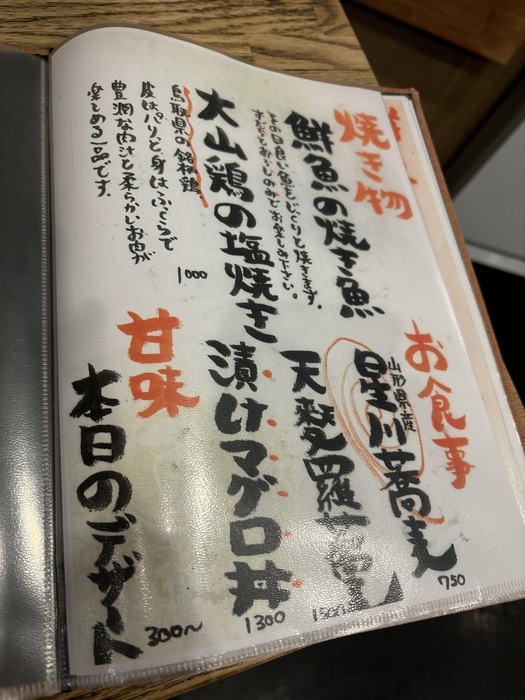 焼き物
鮮魚の焼き魚
その日良い魚をじっくりと焼きます。
大山鶏の塩焼き
鳥取県の銘柄鶏
皮はパリッと、身はふっくらで
豊潤な肉汁と柔らかいお肉が
楽しめる一品です。
1000
お食事
山形県産
星川蕎麦
750
天麩羅蕎麦
1500
漬けマグロ丼
1300
甘味
本日のデザート
300〜